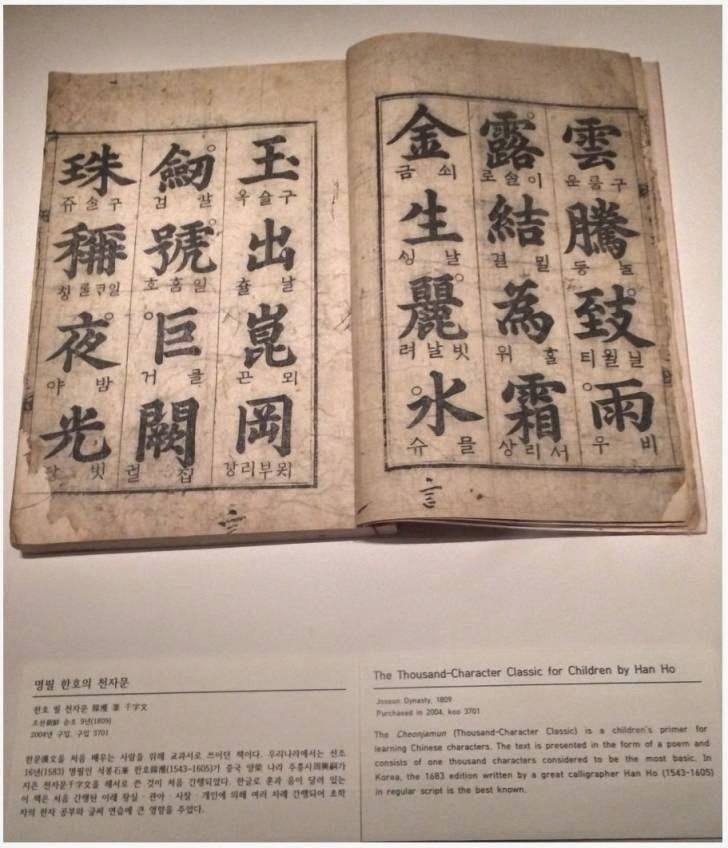 雲 구룸운 騰 등 致 닐월티 雨 비우
露 이슬로 結 결 為 홀위 霜 서리상
金 쇠금 生 날싱 麗 빗날려 水 믈슈
玉 구슬옥 出 날츌 崑 뫼곤 岡 묏부리강
劒 갈검 號 일홈호 巨 클거 闕 집궐
珠 구슬쥬 稱 칭 夜 밤야 光 빗
명필 한호의 천자문
한호 필 천자문 韓濩 筆 千字文
조선朝鮮 순조 9년(1809)
2004년 구입, 구입 3701
한문漢文을 처음 배우는 사람을 위해 교과서로 쓰이던 책이다. 우리나라에서는 선조
16년(1583) 명필인 석봉石峯 한호韓濩(1543-1605)가 중국 양梁 나라 주흥사周興嗣가
지은 천자문千字文을 해서로 쓴 것이 처음 간행되었다. 한글로 훈과 음이 달려 있는
이 책은 처음 간행된 이래 왕실·관아·사찰·개인에 의해 여러 차례 간행되어 초학
자의 한자 공부와 글씨 연습에 큰 영향을 주었다.
The Thousand-Character Classic for Children by Han Ho
Joseon Dynasty, 1809
Purchased in 2004, koo 3701
The Cheonjamun (Thousand-Character Classic) is a children's primer for
learning Chinese characters. The text is presented in the form of a poem and
consists of one thousand characters considered to be the most basic. In
Korea, the 1683 edition written by a great calligrapher Han Ho (1543-1605)
in regular script is the best known.